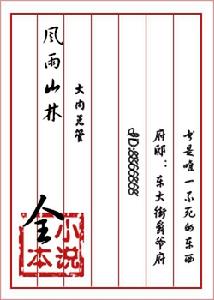 书是唯一不死的东西
府邸：东大街爷府
大内总管
風雨山林
小说
全本